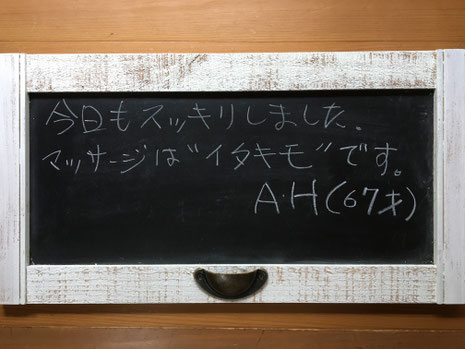 今日もスッキリしました.
マッサージは"イタキモ"です。
A.H(67才)